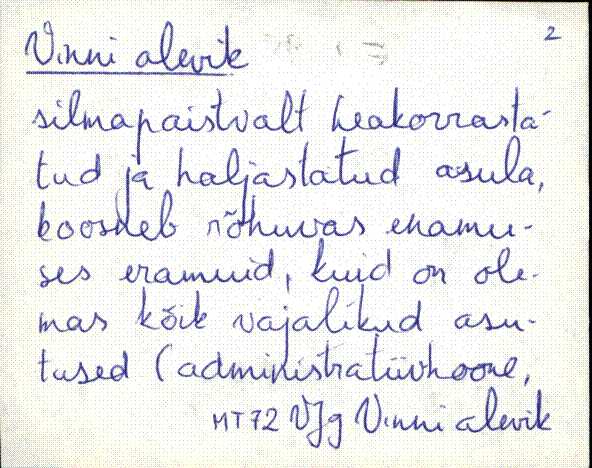 2
Vinni alevik
silmapaistvalt heakorrasta-
tud ja haljastatud asula,
koosneb rõhuvas enamu-
ses eramuid, kuid on ole-
mas kõik vajalikud asu-
tused (administratiivhoone,
MT72 VJg Vinni alevik